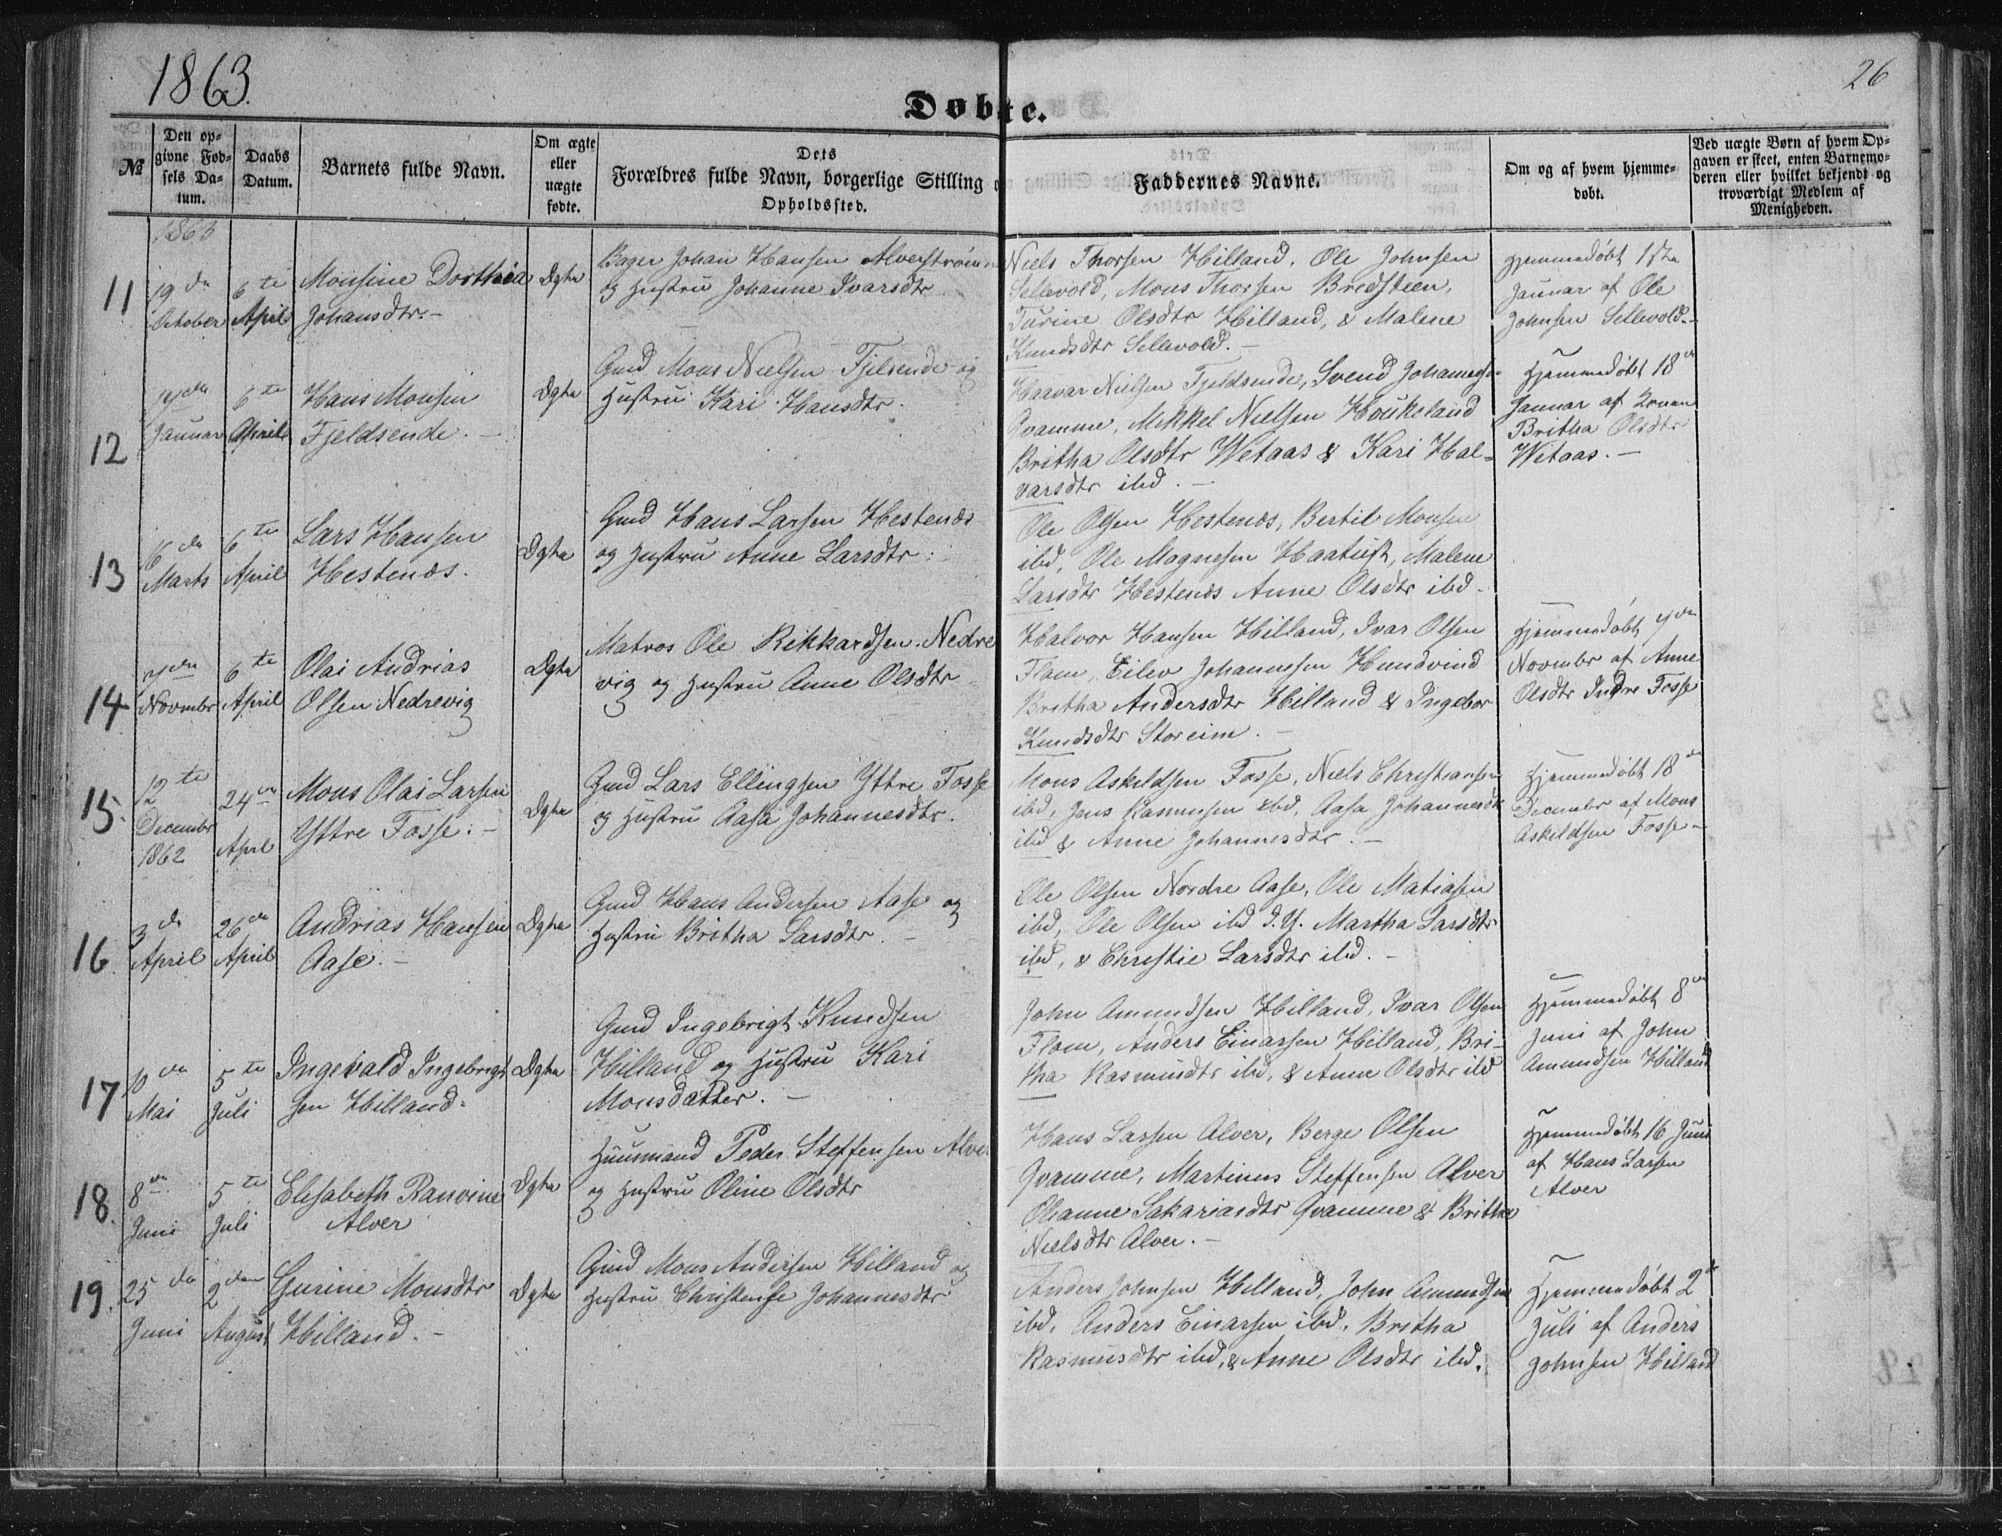 1863.
26
Døbte.
№
Den op-
givne Fød-
sels Da-
tum.
Daabs
Datum.
Barnets fulde Navn.
Om ægte
eller
uægte
fødte.
Dets
Forældres fulde Navn, borgerlige Stilling o
Opholdssted.
Faddernes Navne.
Om og af hvem hjemme-
døbt.
Ved uægte Børn af hvem Op-
gaven er skeet, enten Barnemo-
deren eller hvilket bekjendt og
troværdigt Medlem af
Menigheden.
1863
11
19de
October
6te
April
Monsine Dorthea
Johansdtr. -
Ægte
Bager Johan Hansen Alverstrøm
og Hustru Johanne Ivarsdtr
Niels Thorsen Hilland, Ole Johnsen
Sellevold, Mons Thorsen Bredsteen,
Turine Olsdtr Hilland, & Malene
Knudsdtr Sellevold. -
Hjemmedøbt
Januar af Ole
Johnsen Sellevold. -
12
Januar
6te
April
Hans Monsen
Fjeldsende. -
Ægte
Gmd Mons Nielsen Fjelsende og
Hustru Kari Hansdtr.
Haavar Nielsen Fjeldsende, Svend Johannesen
Qvamme, Mikkel Nielsen Houkeland
Britha Olsdtr Wetaas & Kari Hal-
varsdtr ibd. -
Hjemmedøbt 18de
Januar af Konen
Britha Olsdtr
Wetaas. -
13
6de
Marts
6te
April
Lars Hansen
Hestenæs.
Ægte
Gmd Hans Larsen Hestenæs
og Hustru Anne Larsdtr.
Ole Olsen Hestenæs, Bertil Monsen
ibd, Ole Magnesen Haatuft, Malene
Larsdtr Hestenæs Anne Olsdtr ibd.
14
Novembr
6te
April
Olai Andrias
Olsen Nedrevig
Ægte
Matros Ole Rikkardsen Nedre
vig og Hustru Anne Olsdtr
Halvor Hansen Hilland, Ivar Olsen
Flom, Eilev Johannessen Hundvind
Britha Andersdtr Hilland & Ingebor
Knudsdtr Storeim. -
Hjemmedøbt
Novembr af Anne
Olsdtr Indre Fosse
15.
12te
Decembr
1862
24de
April
Mons Olai Larsen
Yttre Fosse. -
Ægte
Gmd Lars Ellingsen Yttre Fosse
og Hustru Aasa Johannesdtr.
Mons Askildsen Fosse, Niels Christiansen
ibd, Jens Rasmussen ibd, Aasa Johannesdtr
ibd & Anne Johannesdtr. -
Hjemmedøbt 18de
Decembr af Mons
Askildsen Fosse -
16.
3de
April
26de
April
Andrias Hansen
Aase. -
Ægte
Gmd Hans Andersen Aase og
Hustru Britha Larsdtr. -
Ole Olsen Nordre Aase, Ole Matiasen
ibd, Ole Olsen ibd d.y. Martha Larsdtr
ibd, & Christie Larsdtr ibd. -
17
10de
Mai
5te
Juli
Ingevald Ingebrigt
sen Hilland.
Ægte
Gmd Ingebrigt Knudsen
Hilland og Hustru Kari
Monsdatter. -
John Amundsen Hilland, Ivar Olsen
Flom, Anders Einarsen Hilland, Bri-
tha Rasmusdtr ibd, & Anne Olsdtr ibd
Hjemmedøbt 8de
Juni af John
Amundsen Hilland
18.
8de
Juni
5te
Juli
Elisabeth Ranvine
Alver
Ægte
Huusmand Peder Steffensen Alver
og Hustru Oline Olsdtr
Hans Larsen Alver, Berge Olsen
Qvamme, Martinus Steffensen Alver
Ohanne Sakariasdtr Qvamme & Britha
Nielsdtr Alver. -
Hjemmedøbt 16 Juni
af Hans Larsen
Alver
19.
25de
Juni
2den
August
Gurine Monsdtr
Hilland. -
Ægte
Gmd Mons Andersen Hilland og
Hustru Christense Johannesdtr
Anders Johnsen Hilland, John Amundsen
ibd, Anders Einarsen ibd, Britha
Rasmusdtr ibd, & Anne Olsdtr ibd.
Hjemmedøbt 2de
Juli af Anders
Johnsen Hilland